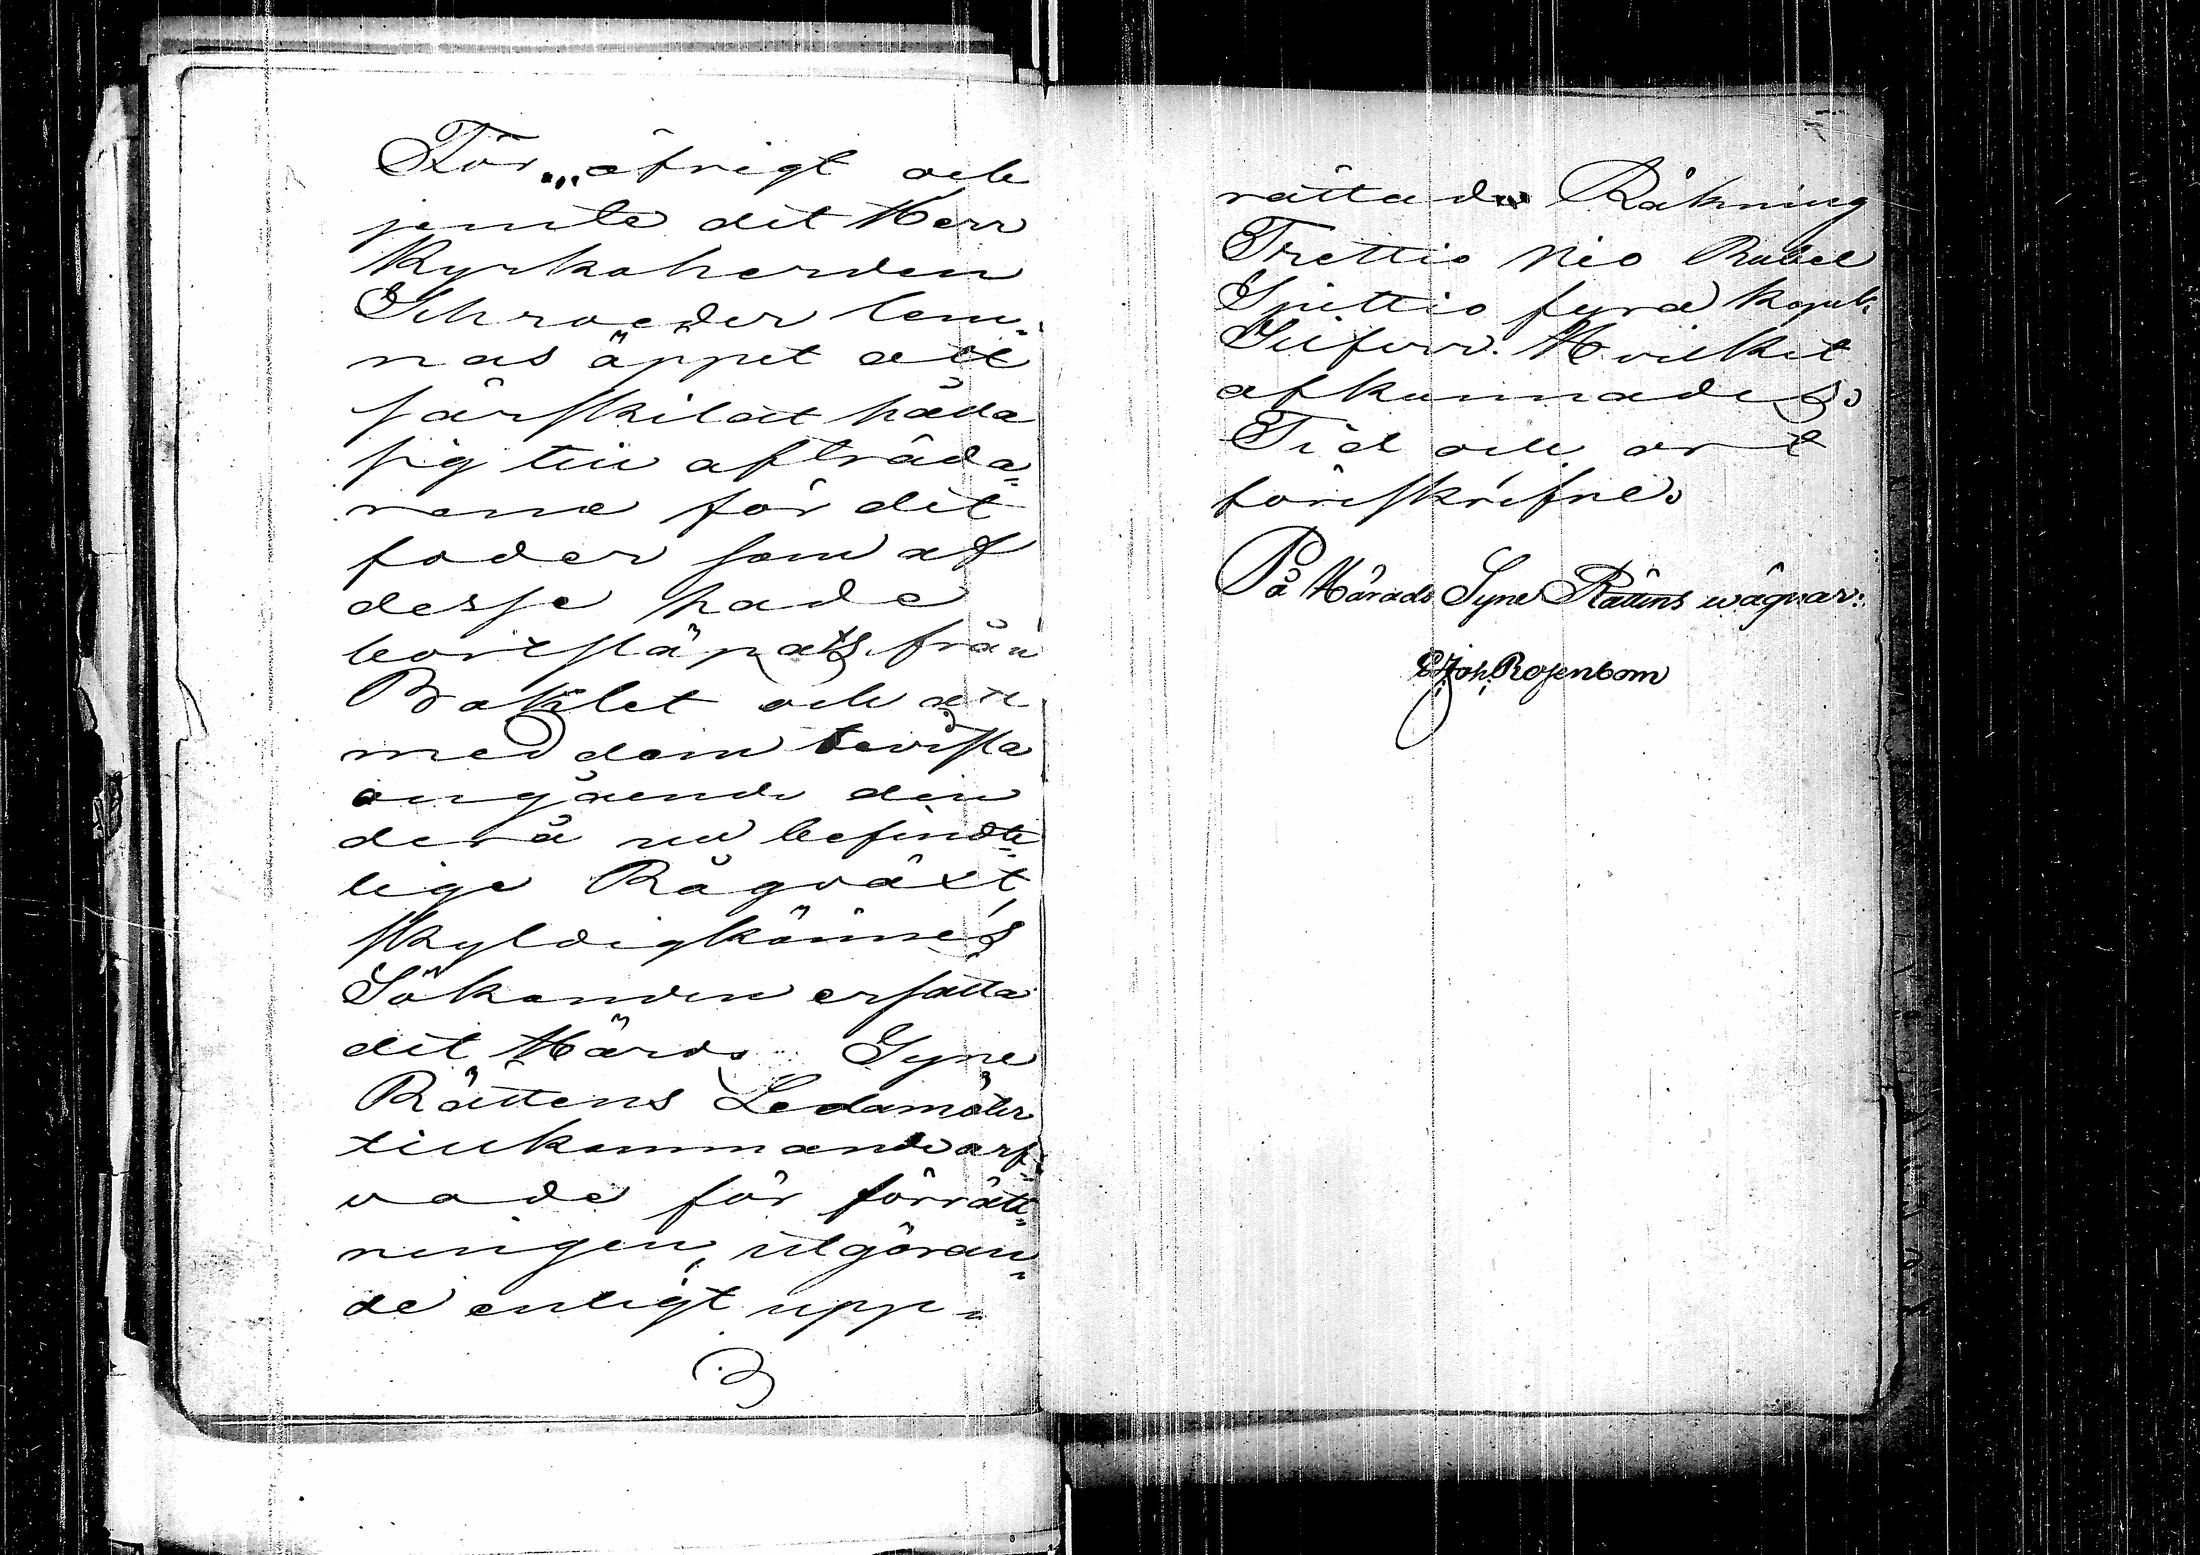 För öfrigt och
jemte det Herr
Kyrkoherden
Schroeder lem¬
nas öppet att
särskildt hålla
sig till afträda¬
rena för det
foder som af
desse hade
bortsläpats från
Bohlet och att
med dem tvista
angående den
derå nu befindte¬
lige Rågväxt,
skyldigkännes
Sökanden ersätta
det Härads Syne
Rättens Ledamöter
tillkommande arf¬
vode för förrätt¬
ningen, utgöran¬
de enligt upp¬
rättade Räkning
Trettio Nio Rubel
Sjuttio fyra kopek
Silfver. Hvilket
afkunnades.
Tid och ort
föreskrifne.
På Härads Syne Rättens wägnar:
Joh. Rosenbom